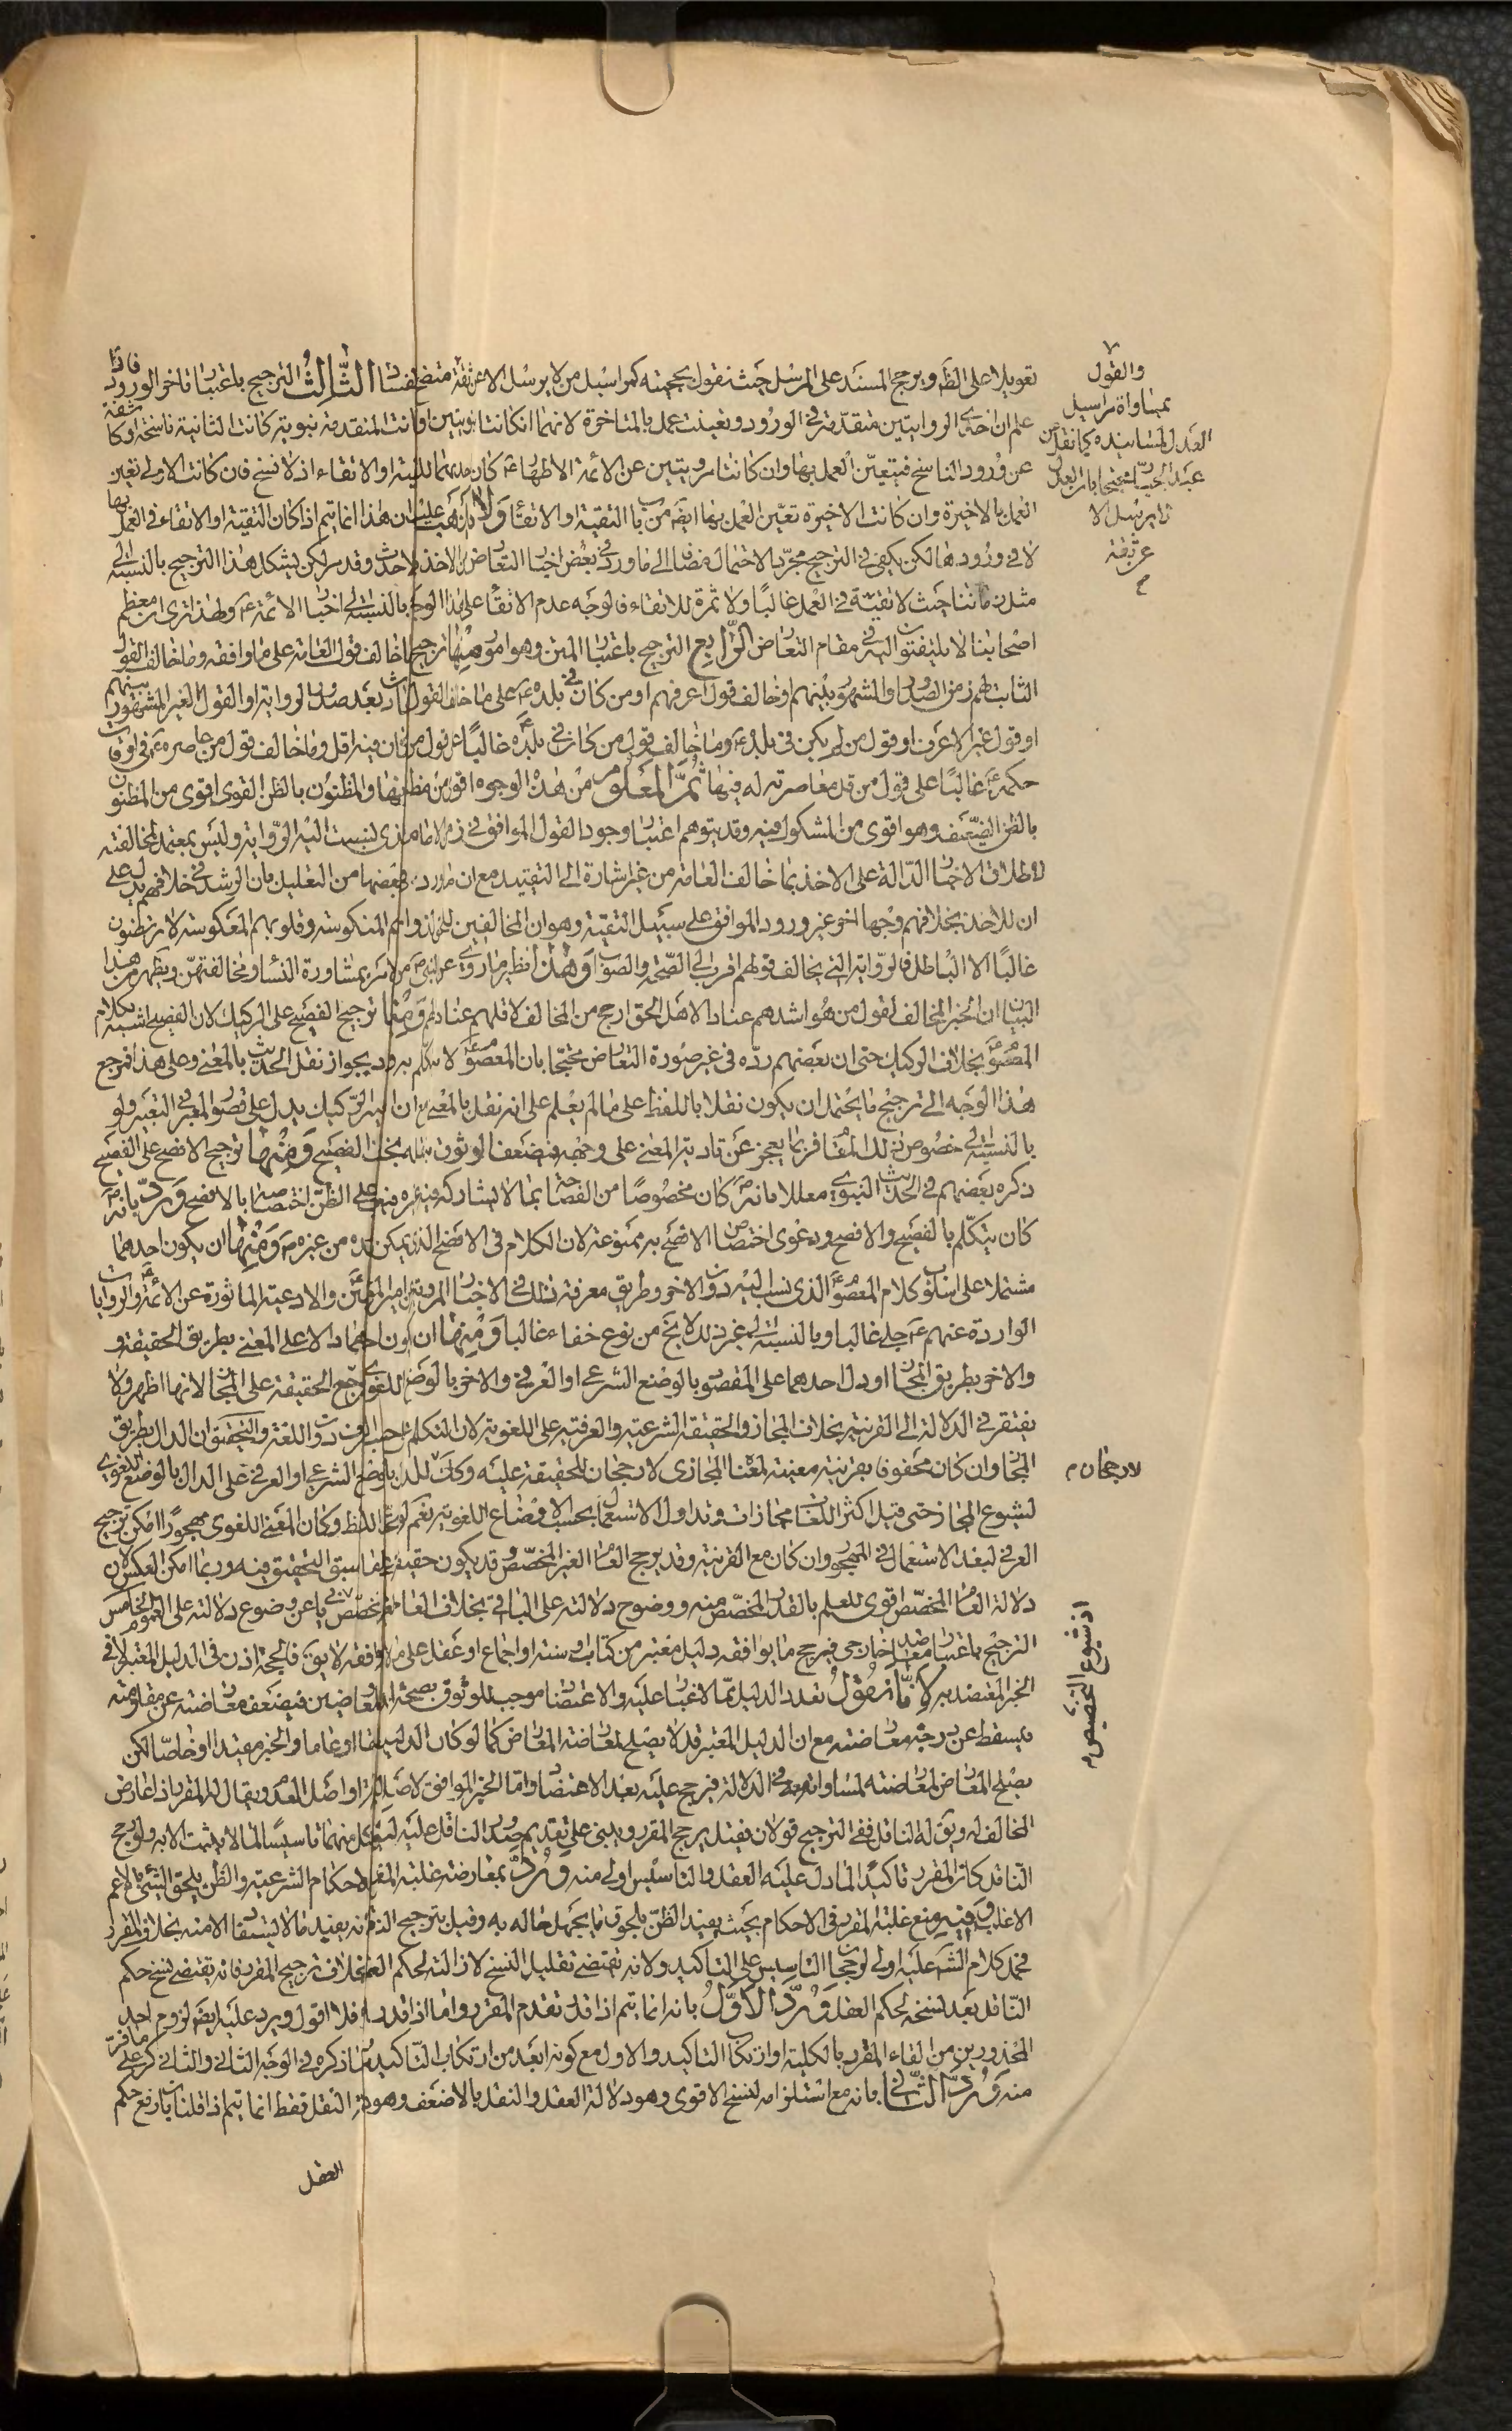 تعويلا على الظن ويرجح المسند على المرسل حيث نقول بحجيته كمراسيل من لا يرسل الا عن ثقة الثالث الترجيح باعتبار تاخر الورود فاذا
علم ان احدى الروايتين متقدمة في الورود وتعينت عمل بالمتاخرة لانهما ان كانتا نبويتين او كانت المتقدمة نبوية كانت الثانية ناسخة او كاشفة
عن ورود الناسخ فيتعين العمل بها وان كانتا مرويتين عن الائمة الاطهار ع كان للتقية او الاتقاء اذ لا نسخ فان كانت الاولى تعين
العمل بالاخيرة وان كانت الاخيرة تعين العمل بها ايضا من باب التقية او الاتقاء ان هذا انما يتم اذا كان التقية او الاتقاء في العمل بها
لا في ورودها لكن يكفي في الترجيح مجرد الاحتمال مضافا الى ما ورد في بعض اخبار التعارض من الاخذ بالاحدث وقد مر لكن يشكل هذا الترجيح بالنسبة الى
مثل زماننا حيث لا تقية في العمل غالبا ولا ثمرة للاتقاء فالوجه عدم على هذا الوجه بالنسبة الى اخبار الائمة ع ولهذا ترى ان معظم
اصحابنا لا يلتفتون اليه في مقام التعارض الرابع الترجيح باعتبار المتن وهو امور منها ترجيح ما خالف قول العامة على ما وافقه وما خالف القول
الثابت لهم زمن الصدور او المشهور بينهم او خالف قول اعرفهم او من كان في بلده ع على ما خالف القول بعد صدور الرواية او القول الغير المشهور بينهم
او قول غير الاعرف او قول من لم يكن في بلده ع وما خالف قول من كان في بلده غالبا على قول من كان فيه اقل وما خالف قول من عاصره ع في اوقات
حكمه ع غالبا على قول من قل معاصرته له فيها ثم المعلوم من هذه الوجوه اقوى من مظنونها والمظنون بالظن القوى اقوى من المظنون
بالظن الضعيف وهو اقوى من المشكوك فيه وقد يتوهم اعتبار وجود القول الموافق في زمن الامام الذي نسبت اليه الرواية وليس بمعتمد لمخالفته
لاطلاق الاخبار الدالة على الاخذ بما خالف العامة من غير اشارة الى التقييد مع ان ما ورد في بعضها من التعليل بان الرشد في خلافهم يدل على
ان للاخذ بخلافهم وجها اخر غير ورود الموافق على سبيل التقية وهو ان المخالفين المنكوسة وقلوبهم المعكوسة لا يرتضون
غالبا الا الباطل فالرواية التي يخالف قولهم اقرب الى الصحة والصواب وهذا نظير ما روي عن النبي ص من الامر بمشاورة النساء ومخالفتهن ويظهر من هذا
البيان ان الخبر المخالف لقول من هو اشدهم عنادا لاهل الحق ارجح من المخالف لاقلهم عنادا لهم ومنها ترجيح الفصيح على الركيك لان الفصيح اشبه بكلام
المعصوم بخلاف الركيك حتى ان بعضهم رده في غير صورة التعارض محتجا بان المعصوم لا يتكلم به ورد بجواز نقل الحديث بالمعنى وعلى هذا فمرجع
هذا الوجه الى ترجيح ما يحتمل ان يكون نقلا باللفظ على ما لم يعلم على انه نقل بالمعنى مع ان التركيك يدل على قصور المعبر في التعبير ولو
بالنسبة الى خصوص ذلك المقام فربما يعجز عن تادية المعنى على وجهه فيضعف الوثوق بنقله بخلاف الفصيح ومنها ترجيح الافصح على الفصيح
ذكره بعضهم في الحديث النبوي معللا بانه ص كان مخصوصا من الفصاحة بما لا يشاركه فيه غيره فيغلب على الظن اختصاصه بالافصح ورد بانه ص
كان يتكلم بالفصيح والافصح ودعوى اختصاص الافصح به ممنوعة لان الكلام في الافصح الذي يمكن صدوره من غيره ص ومنها ان يكون احدهما
مشتملا على اسلوب كلام المعصوم الذي نسب اليه دون الاخر وطريق معرفة ذلك في الاخبار المروية عن امير المؤمنين والادعية الماثورة عن الائمة ع والروايات
الواردة عنهم ع جلي غالبا وبالنسبة الى غير ذلك لا يخ من نوع خفاء غالبا ومنها ان يكون احدهما دالا على المعنى بطريق الحقيقة و
والاخر بطريق المجاز او دل احدهما على المقصود بالوضع الشرعي او العرفي والاخر بالوضع اللغوي فيرجح الحقيقة على المجاز لانها اظهر ولا
يفتقر في الدلالة الى القرينة بخلاف المجاز والحقيقة الشرعية والعرفية على اللغوية لان التكلم على حسب العرف دون اللغة والتحقيق ان الدال بطريق
المجاز وان كان محفوفا بقرينة معينة لمعناه المجازى لا رجحان للحقيقة عليه وكذا الدال بالوضع الشرعي او العرفي على الدال بالوضع اللغوي
لشيوع المجاز حتى قيل اكثر اللغات مجازات وتداول الاستعمال بحسب الاوضاع اللغوية نعم لو اتحد اللفظ وكان المعنى اللغوي مهجورا امكن ترجيح
العرفي لبعد الاستعمال في المهجور وان كان مع القرينة وقد يرجح العام الغير المخصص وقد يكون حقيقة لما سبق التحقيق فيه وربما امكن العكس لان
دلالة العام المخصص اقوى للعلم بالقدر المخصص منه ووضوح دلالته على الباقي بخلاف العام الغير المخصص عن وضوع دلالته على العموم الخامس
الترجيح باعتبار معاضد خارجى فيرجح ما يوافقه دليل معتبر من كتاب او سنة او اجماع او عقل على ما لا يوافقه لا يق فالحجة اذن في الدليل المعتبر لا في
الخبر المعتضد به لانا نقول تعدد الدليل مما لا غبار عليه والاعتضاد موجب للوثوق بصحة المتعاضدين فيضعف معارضته عن مقاومته
فيسقط عن درجة معارضته مع ان الدليل المعتبر قد لا يصلح لمعارضة المعارض كما لو كان الدليل مطلقا او عاما والخبر مقيدا او خاصا لكن
يصلح المعارض لمعارضته لمساواته معه في الدلالة فيرجح عليه بعد الاعتضاد واما الخبر الموافق لاصل البرائة او اصل العدم ويقال له المقرر اذا عارض
المخالف له ويق له الناقل ففي الترجيح قولان فقيل يرجح المقرر ويبنى على تقديم صدور الناقل عليه ليكون كل منهما تاسيسا لما لا يثبت الا به ولو رجح
الناقل كان المقرر تاكيدا لما دل عليه العقل والتاسيس اولى منه ورد بمعارضة غلبة المقرر لاحكام الشرعية والظن يلحق الشيء بالاعم
الاغلب وفيه منع غلبة المقرر في الاحكام بحيث يفيد الظن بلحوق ما يجهل حاله به وقيل بترجيح الناقل لانه يفيد ما لا يستفاد الا منه بخلاف المقرر
فحمل كلام الشرع عليه اولى لرجحان التاسيس على التاكيد ولانه يقتضي تقليل النسخ لازالته لحكم العقل بخلاف ترجيح المقرر فانه يقتضي نسخ حكم
الناقل بعد نسخه لحكم العقل ورد الاول بانه انما يتم اذا قدر تقدم المقرر واما اذا قدر تاخره فلا اقول ويرد عليه ايضا لزوم احد
المحذورين من الغاء المقرر بالكلية او ارتكاب التاكيد والاول مع كونه ابعد من ارتكاب التاكيد ذكره في الوجه الثاني والثاني كر على ما فر
منه ورد الثاني بانه مع استلزامه لنسخ الاقوى وهو دلالة العقل والنقل بالاضعف وهو دلالة النقل فقط انما يتم اذا قلنا بان رفع حكم
العقل
والقول
بمساواة مراسيل
العدل لمسانيده كما نقل عن
لا يرسل الا
عن ثقة
لا رجحان م
اذ شيوع التخصيص م